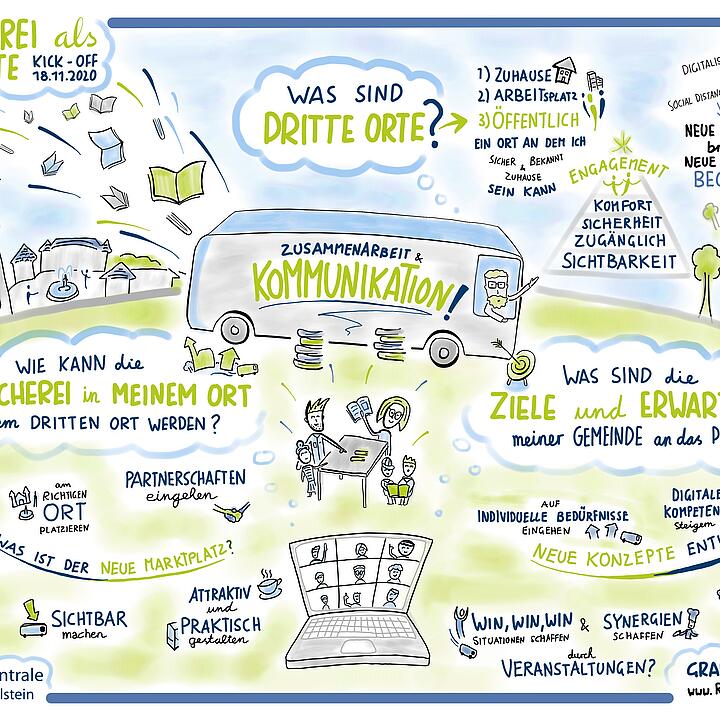 REI als
TE KICK-OFF
18.11.2020
WAS SIND
DRITTE ORTE?
1) ZUHAUSE
2) ARBEITSPLATZ
3) ÖFFENTLICH
EIN ORT AN DEM ICH
SICHER & BEKANNT
ZUHAUSE
SEIN KANN
ENGAGEMENT
KOMFORT
SICHERHEIT
ZUGÄNGLICH
SICHTBARKEIT
DIGITALIS
SOCIAL DISTAN
NEUE
br
NEUE
BEG
ZUSAMMENARBEIT &
KOMMUNIKATION!
WIE KANN die
CHEREI in MEINEM ORT
em DRITTEN ORT WERDEN?
WAS SIND die
ZIELE und ERWART
meiner GEMEINDE an das P
am
RICHTIGEN
ORT
PLATZIEREN
PARTNERSCHAFTEN
eingehen
WAS IST DER NEUE MARKTPLATZ?
SICHTBAR
machen
ATTRAKTIV
und
PRAKTISCH
gestalten
AUF
INDIVIDUELLE BEDÜRFNISSE
EINGEHEN
DIGITALE
KOMPETEN
steigern
NEUE KONZEPTE ENTW
WIN, WIN, WIN
SITUATIONEN SCHAFFEN
& SYNERGIEN
SCHAFFEN
durch
VERANSTALTUNGEN?
ntrale
lstein
GRA
www.R